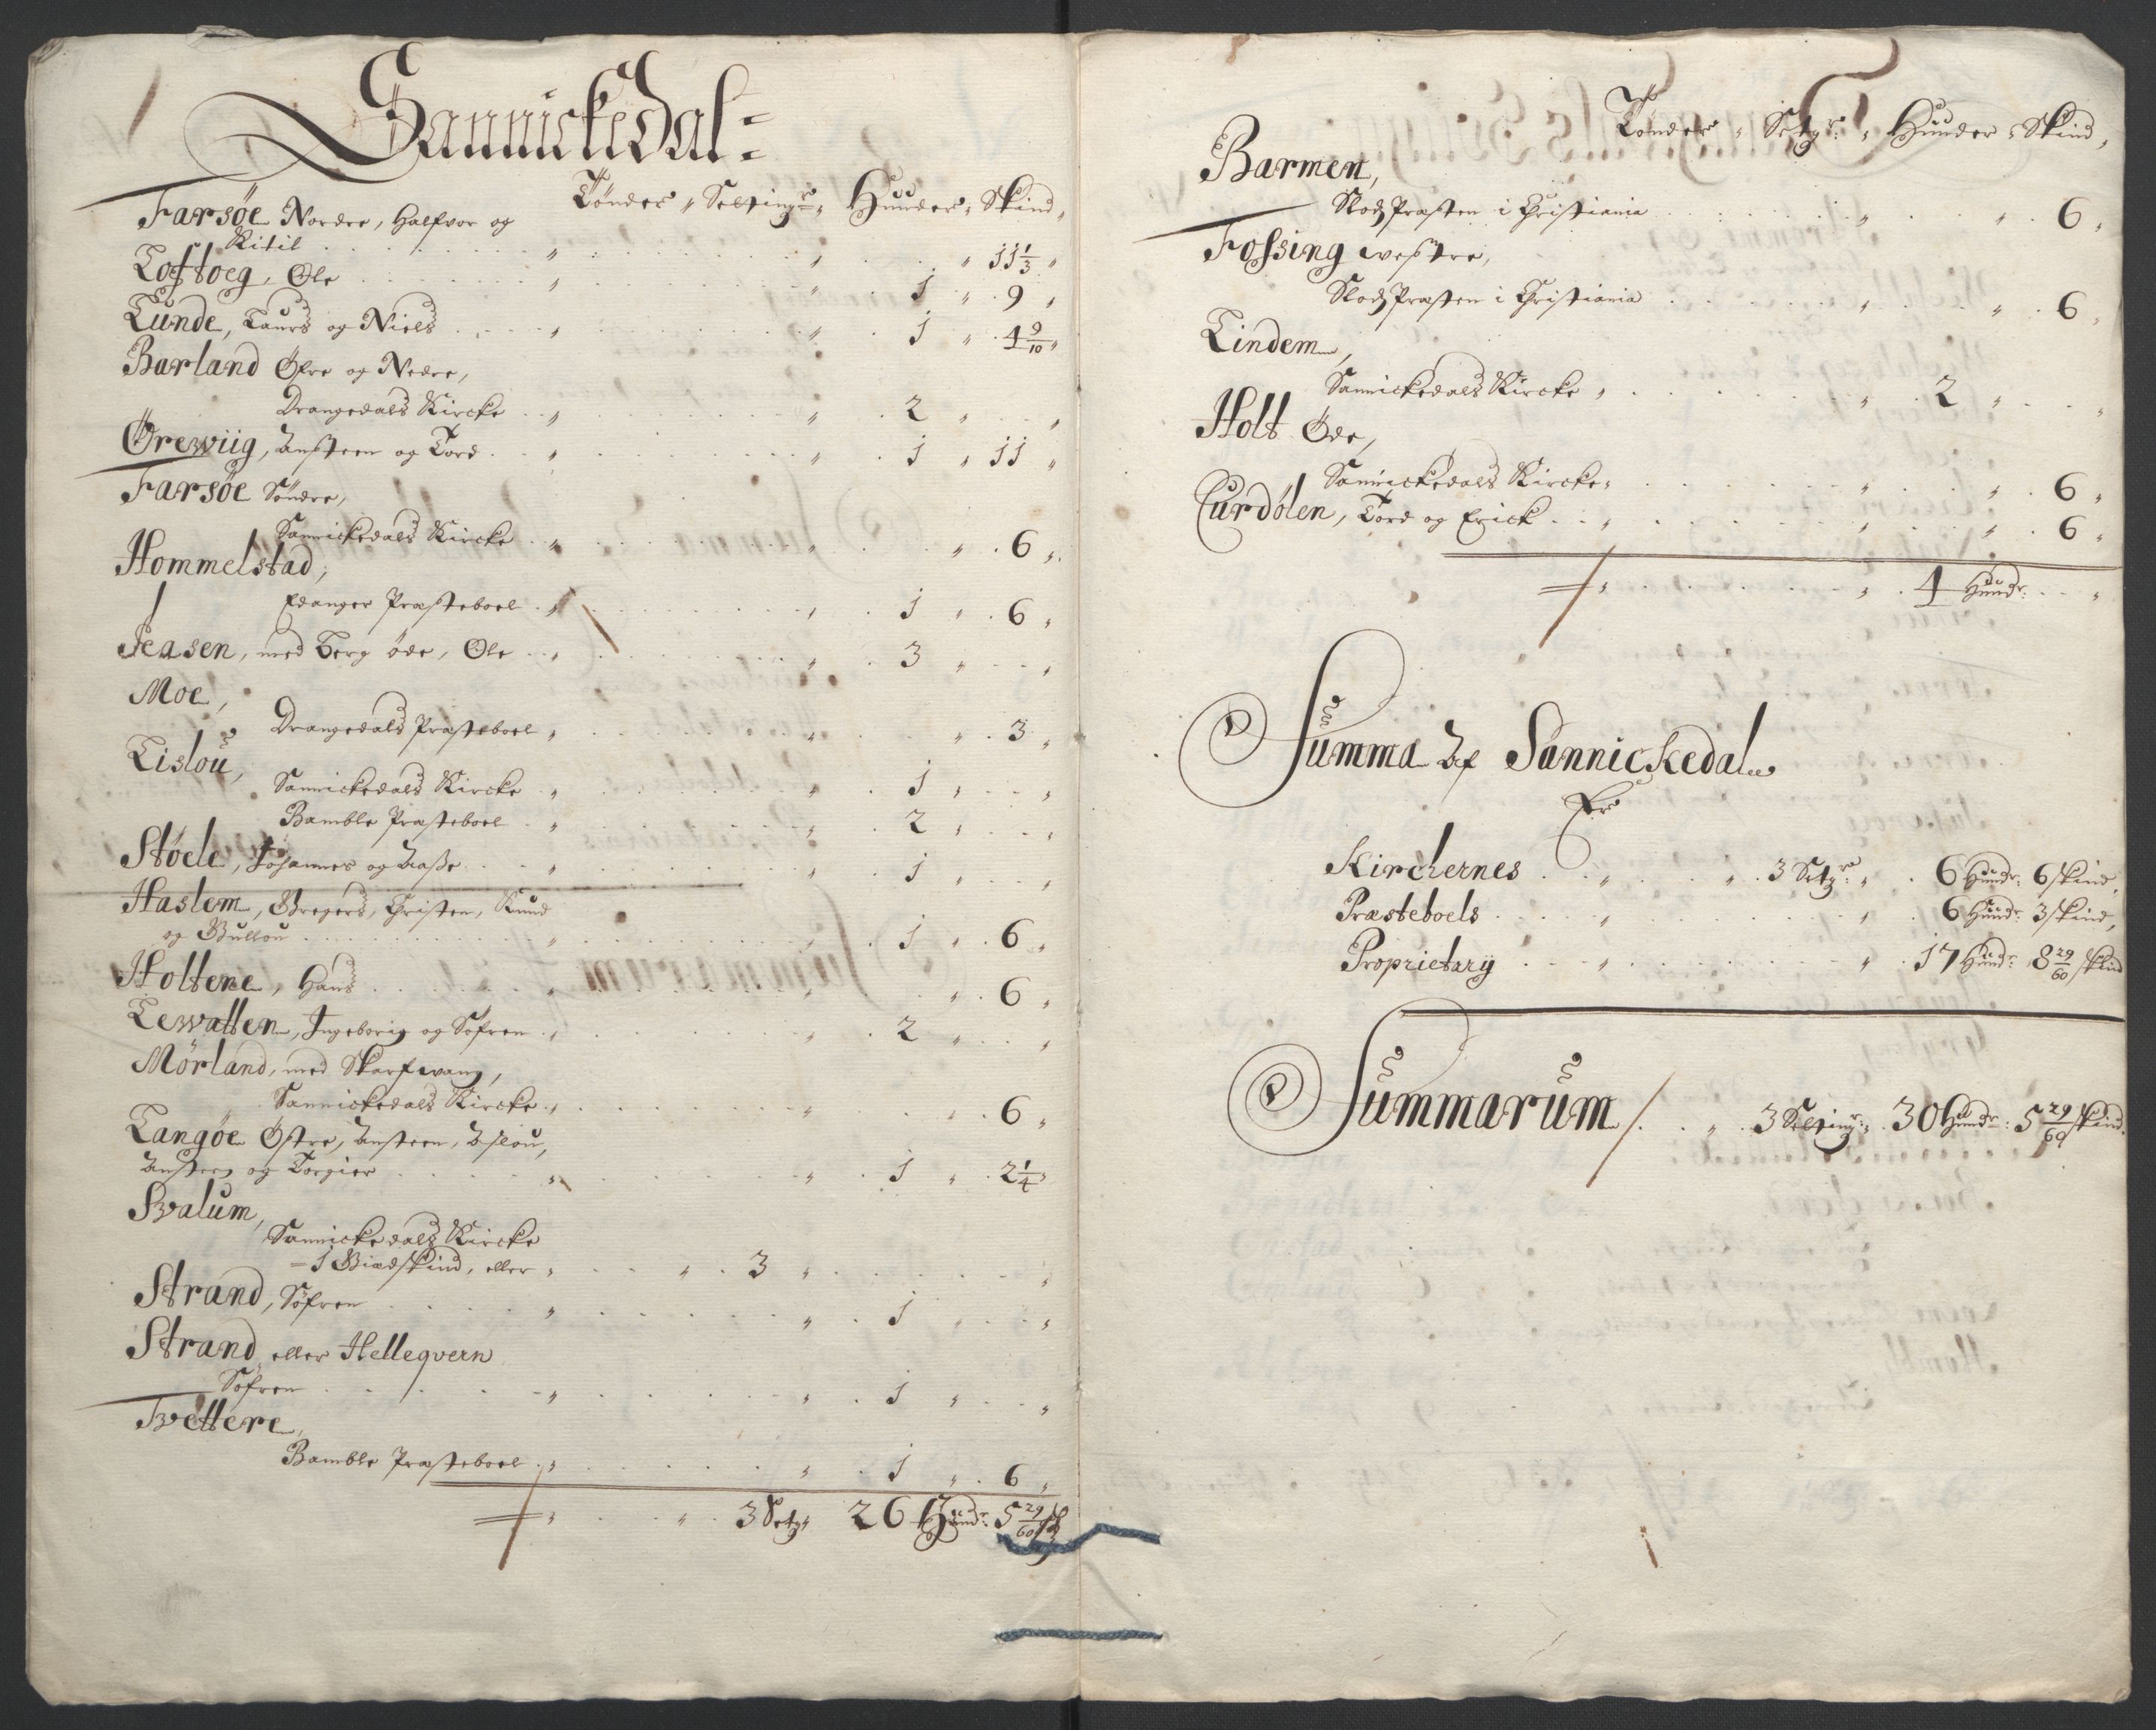 Sannickedal
Tønder, Setting:, Hunder, Skind,
Farsøe Nordre, Halfvor og
Kitil . . . 11 1/3
Loftoeg, Ole . . . 1 9
Lunde, Laurs og Niels . . . 1 4 9/10
Barland Øfre og Nedre,
Drangedals Kircke . . . 2
Ørewiig, Ansteen og Tord . . . 1 11
Farsøe Søndre,
Sannickedals Kircke . . . 6
Hommelstad,
Edanger Præsteboel . . . 1 6
Seasen, med Berg øde, Ole . . . 3
Moe,
Drangedals Præsteboel . . . 3
Lislou,
Sannickedals Kircke . . . 1
Bamble Præsteboel . . . 2
Støele, Johannes og Aasse . . . 1
Haslem, Gregers, Christen, Knud
og Gullou . . . 1 6
Holtene, Hans . . . 6
Lewatten, Ingeborig og Søfren . . . 2
Mørland, med Skarfwang,
Sannickedals Kircke . . . 6
Langøe Østre, Ansteen, Aslou,
Ansteen og Torgier . . . 1 2 1/4
Svalum,
Sannickedals Kircke
1 Giædskind, eller . . . 3
Strand, Søfren . . . 1
Strand eller Helleqvern
Søfren . . . 1
Tvettere,
Bamble Præsteboel . . . 1 6
3 Setg 26 Hundr: 5 29/60 sk
Tønder, Setgr:, Hunder, Skind,
Barmen,
Slodz Præsten i Christiania . . . 6
Fossing westre,
Slodz Præsten i Christiania . . . 6
Lindem,
Sannickedals Kircke . . . 2
Holt Øde,
Sannickedals Kircke . . . 6
Curdølen, Tord og Erick . . . 6
4 Hundr:
Summa Af Sannickedal
Er
Kirchernes . . . 3 Setgr: 6 Hundr: 6 skind,
Præsteboels . . . 6 Hundr: 3 skind,
Proprietary . . . 17 Hundr: 8 29/60 skind
Summarum . . . 3 Setting: 30 Hundr: 5 29/60 skind